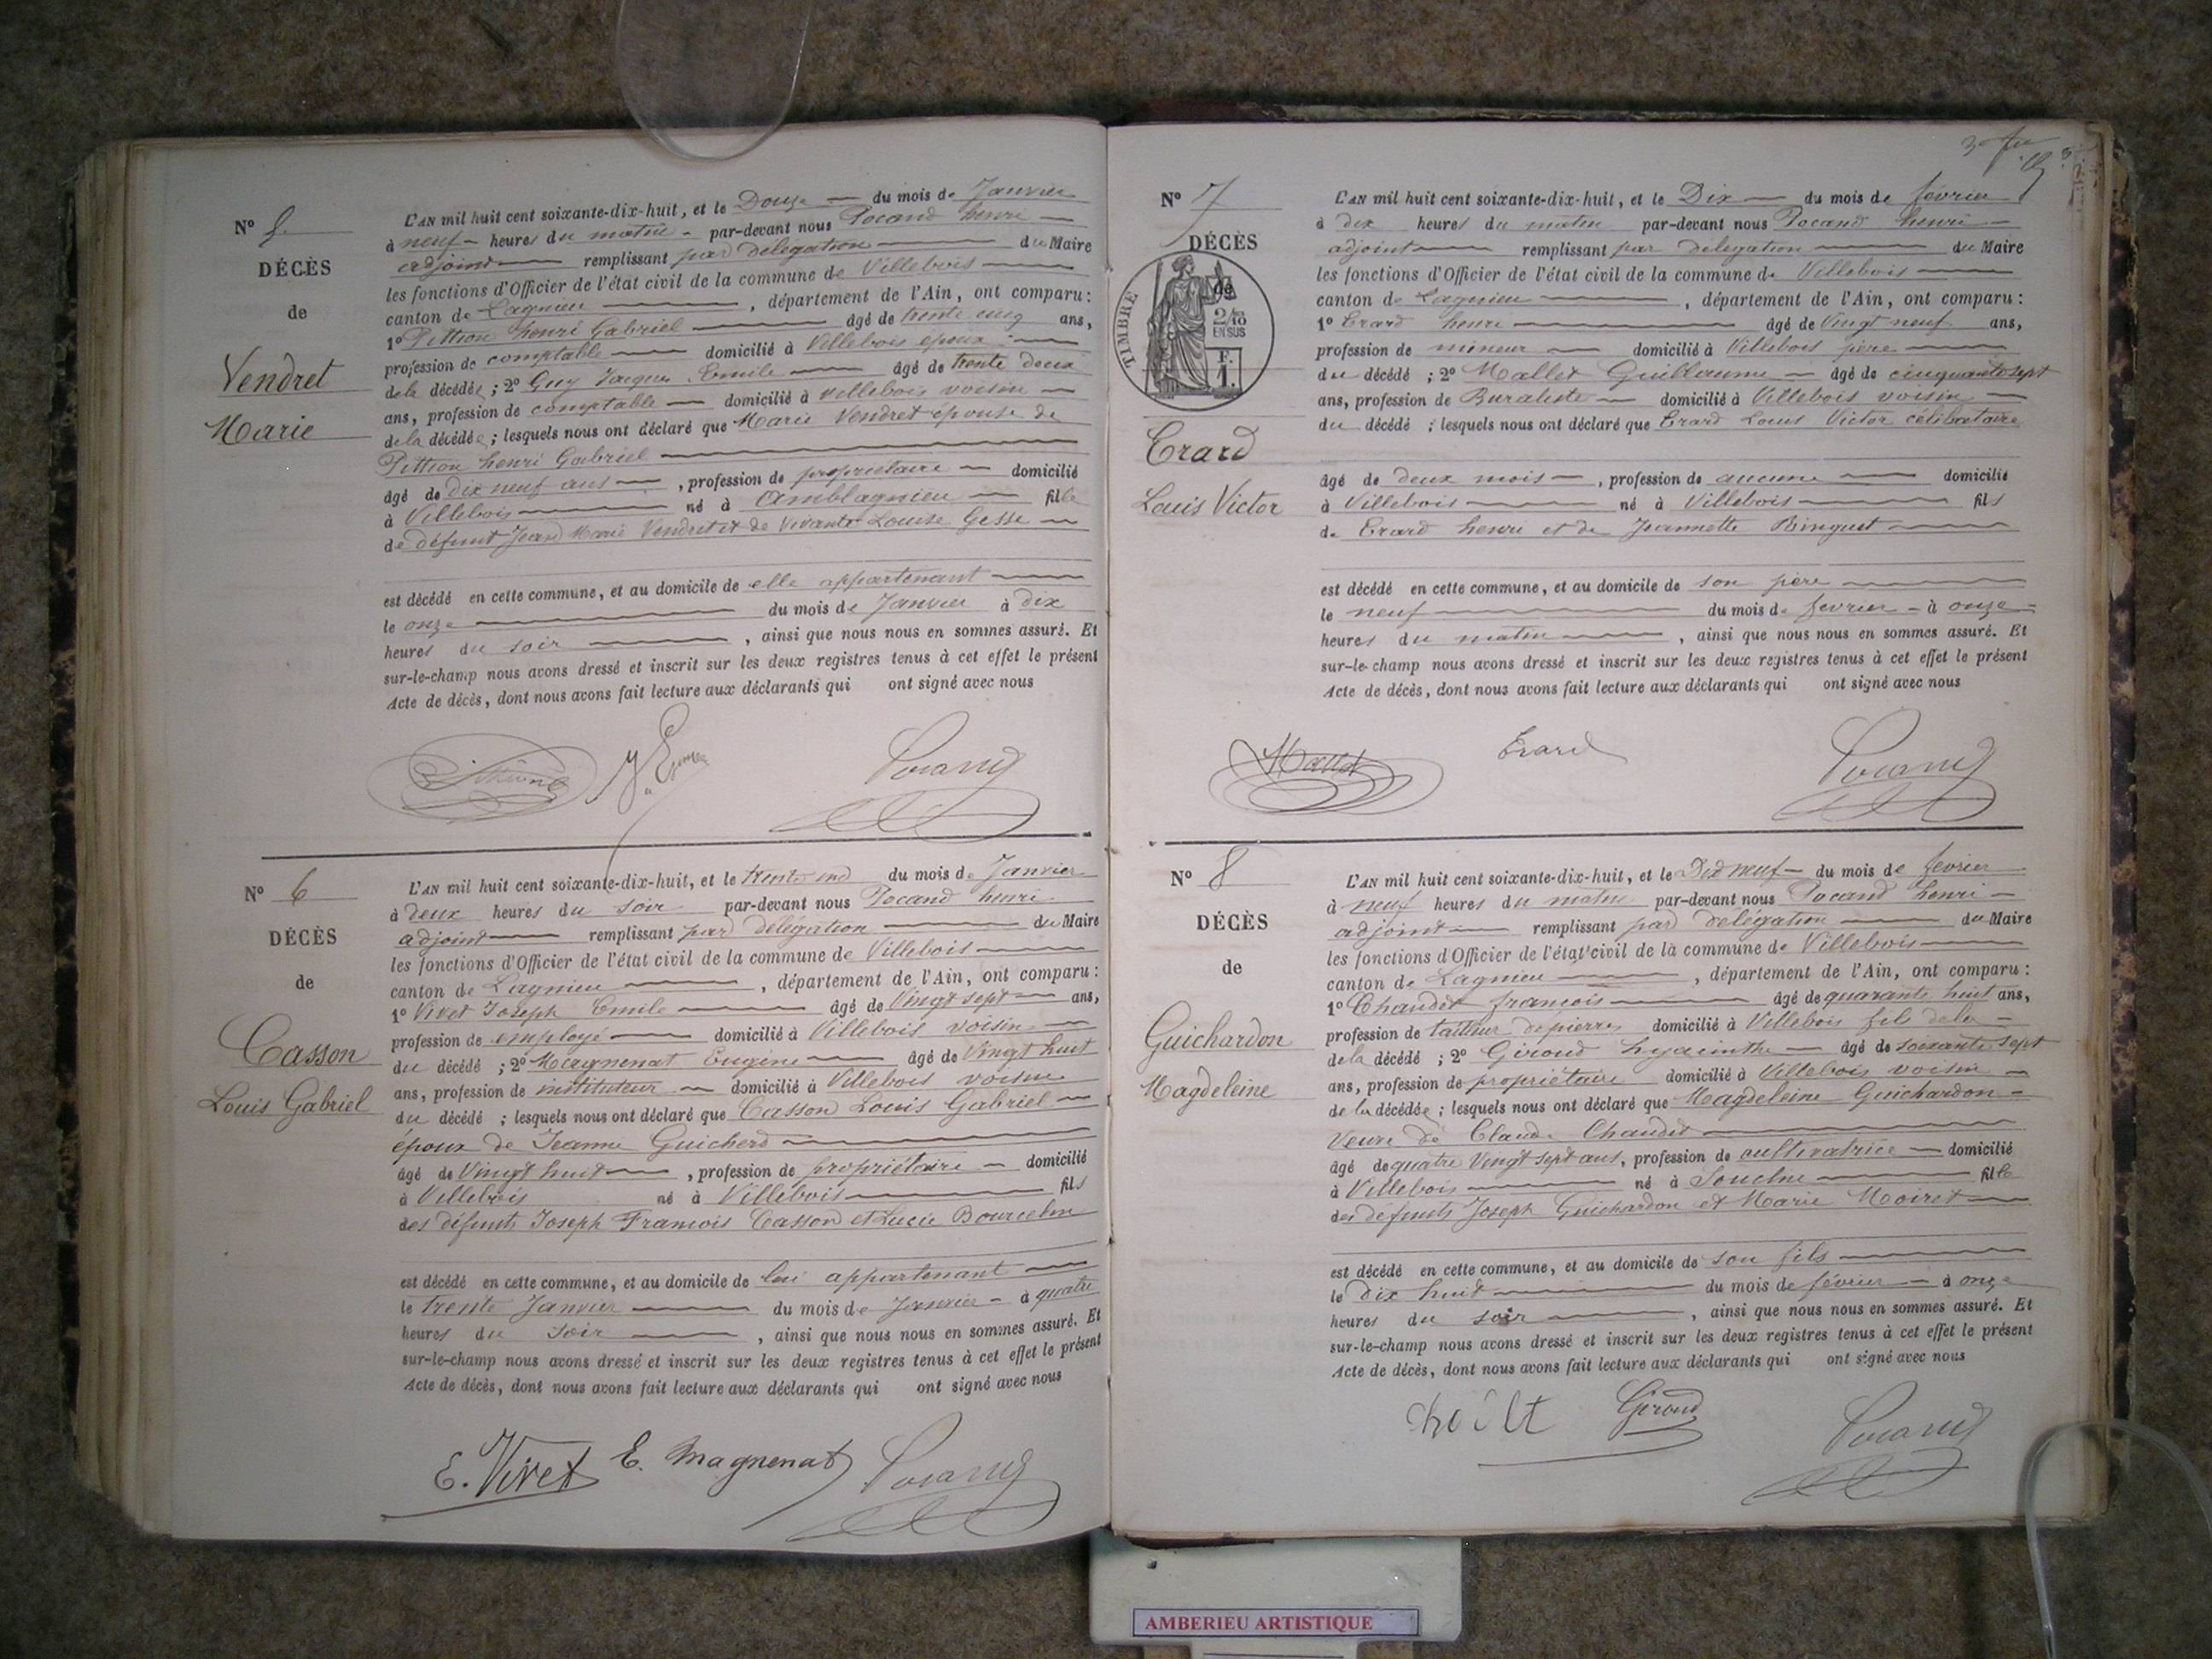 N° 5
DÉCÈS
de
Vendret
Marie
L'AN mil huit cent soixante-dix-huit, et le Douze du mois de Janvier
à neuf heures du matin par-devant nous Pocand henri
adjoint remplissant par délégation du Maire
les fonctions d'Officier de l'état civil de la commune de Villebois
canton de Lagnieu, département de l'Ain, ont comparu :
1° Pittion henri Gabriel âgé de trente cinq ans,
profession de comptable domicilié à Villebois époux
de la décédée ; 2° Guy Jacques Emile âgé de trente deux
ans, profession de comptable domicilié à Villebois voisin
de la décédée ; lesquels nous ont déclaré que Marie Vendret épouse de
Pittion henri Gabriel
âgé de dix neuf ans, profession de propriétaire domicilié
à Villebois né à Amblagnieu fille
de défunt Jean Marie Vendret et de vivante Louise Gesse
est décédé en cette commune, et au domicile de elle appartenant
le onze du mois de Janvier à dix
heures du soir, ainsi que nous nous en sommes assuré. Et
sur-le-champ nous avons dressé et inscrit sur les deux registres tenus à cet effet le présent
Acte de décès, dont nous avons fait lecture aux déclarants qui ont signé avec nous
Pocand
N° 6
DÉCÈS
de
Casson
Louis Gabriel
L'AN mil huit cent soixante-dix-huit, et le trente und du mois de Janvier
à deux heures du soir par-devant nous Pocand henri
adjoint remplissant par délégation du Maire
les fonctions d'Officier de l'état civil de la commune de Villebois
canton de Lagnieu, département de l'Ain, ont comparu :
1° Vivet Joseph Emile âgé de Vingt sept ans,
profession de employé domicilié à Villebois voisin
du décédé ; 2° Magnenat Eugène âgé de Vingt huit
ans, profession de instituteur domicilié à Villebois voisin
du décédé ; lesquels nous ont déclaré que Casson Louis Gabriel
époux de Jeanne Guicherd
âgé de Vingt huit, profession de propriétaire domicilié
à Villebois né à Villebois fils
des défunts Joseph François Casson et Lucie Bourcelin
est décédé en cette commune, et au domicile de lui appartenant
le trente Janvier du mois de Janvier à quatre
heures du soir, ainsi que nous nous en sommes assuré. Et
sur-le-champ nous avons dressé et inscrit sur les deux registres tenus à cet effet le présent
Acte de décès, dont nous avons fait lecture aux déclarants qui ont signé avec nous
E. Vivet E. Magnenat Pocand
N° 7
DÉCÈS
de
TIMBRE
2/10
EN SUS
F.
1.
Erard
Louis Victor
L'AN mil huit cent soixante-dix-huit, et le Dix du mois de février
à dix heures du matin par-devant nous Pocand henri
adjoint remplissant par délégation du Maire
les fonctions d'Officier de l'état civil de la commune de Villebois
canton de Lagnieu, département de l'Ain, ont comparu :
1° Erard henri âgé de Vingt neuf ans,
profession de mineur domicilié à Villebois père
du décédé ; 2° Mallet Guillaume âgé de cinquante sept
ans, profession de Buraliste domicilié à Villebois voisin
du décédé ; lesquels nous ont déclaré que Erard Louis Victor célibataire
âgé de deux mois, profession de aucune domicilié
à Villebois né à Villebois fils
de Erard henri et de Jeannette Binguet
est décédé en cette commune, et au domicile de son père
le neuf du mois de fevrier à onze
heures du matin, ainsi que nous nous en sommes assuré. Et
sur-le-champ nous avons dressé et inscrit sur les deux registres tenus à cet effet le présent
Acte de décès, dont nous avons fait lecture aux déclarants qui ont signé avec nous
Mallet Erard Pocand
N° 8
DÉCÈS
de
Guichardon
Magdeleine
L'AN mil huit cent soixante-dix-huit, et le Dix neuf du mois de fevrier
à neuf heures du matin par-devant nous Pocand henri
adjoint remplissant par délégation du Maire
les fonctions d'Officier de l'état civil de la commune de Villebois
canton de Lagnieu, département de l'Ain, ont comparu :
1° Chaudet françois âgé de quarante huit ans,
profession de tailleur de pierres domicilié à Villebois fils de la
de la décédé ; 2° Giroud hyacinthe âgé de soixante sept
ans, profession de propriétaire domicilié à Villebois voisin
de la décédée ; lesquels nous ont déclaré que Magdeleine Guichardon
veuve de Claude Chaudet
âgé de quatre Vingt sept ans, profession de cultivatrice domicilié
à Villebois né à Souclin fille
des defunts Joseph Guichardon et Marie Moiret
est décédé en cette commune, et au domicile de son fils
le dix huit du mois de février à onze
heures du soir, ainsi que nous nous en sommes assuré. Et
sur-le-champ nous avons dressé et inscrit sur les deux registres tenus à cet effet le présent
Acte de décès, dont nous avons fait lecture aux déclarants qui ont signé avec nous
Giroud Pocand
AMBERIEU ARTISTIQUE